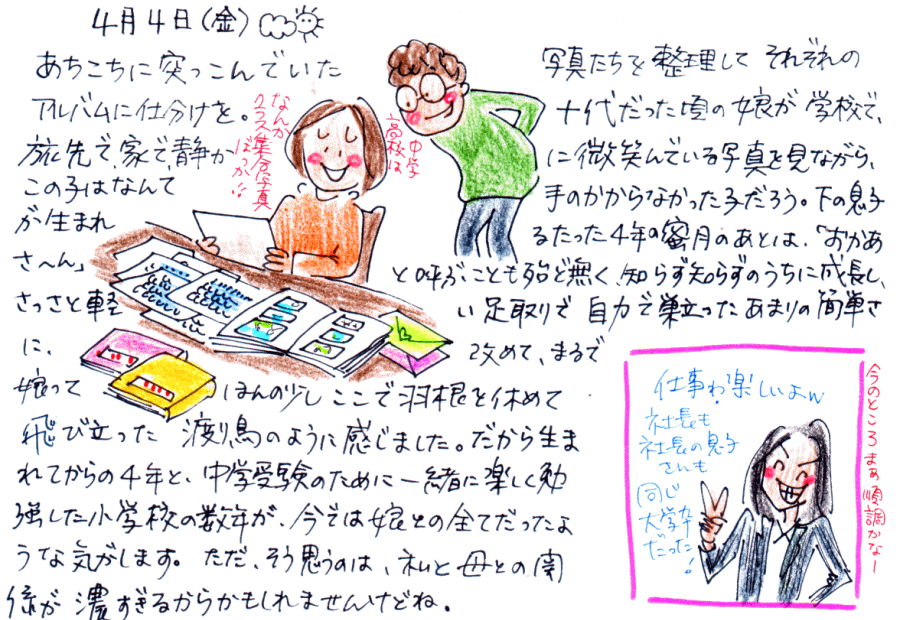 4月4日(金)
あちこちに突っこんでいた 写真たちを整理して それぞれの
アルバムに仕分けを。 十代だった頃の娘が学校で、
旅先で、家で静か に微笑んでいる写真を見ながら、
この子はなんて 手のかからなかった子だろう。下の息子
が生まれ るたった4年の蜜月のあとは、「おかあ
さ〜ん」 と呼ぶことも殆ど無く、知らず知らずのうちに成長し、
さっさと軽 い足取りで 自力で巣立ったあまりの簡単さ
に、 改めて、まるで
娘って ほんの少しここで羽根を休めて
飛び立った 渡り鳥のように感じました。だから生ま
れてからの4年と、中学受験のために一緒に楽しく勉
強した小学校の数年が、今では娘との全てだったよ
うな気がします。ただ、そう思うのは、私と母との関
係が 濃すぎるからかもしれませんけどね。
中学
高校は
なんか
クラス集合写真
ばっか!!
仕事わ楽しいよw
社長も
社長の息子
さんも
同じ
大学卒
だった!
今のところまぁ順調かなー